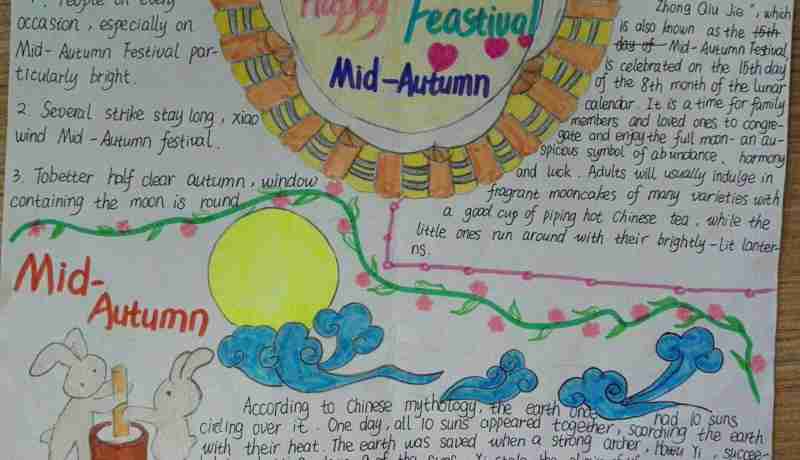 1. People on every
occasion, especially on
Mid-Autumn Festival par-
ticularly bright.
2. Several strike stay long, xiao
wind Mid-Autumn festival.
3. Tobetter half clear autumn, window
containing the moon is round
Happy Feastival
Mid-Autumn
Zhong Qiu Jie", which
is also known as the 15th
day of Mid-Autumn Festival,
is celebrated on the 15th day
of the 8th month of the lunar
calendar. It is a time for family
members and loved ones to congre-
gate and enjoy the full moon - an au-
spicious symbol of abundance, harmony
and luck. Adults will usually indulge in
fragrant mooncakes of many varieties with
a good cup of piping hot Chinese tea, while the
little ones run around with their brightly-lit lanter-
ns.
Mid-
Autumn
According to Chinese mythology, the earth once had 10 suns
cieling over it. One day, all 10 suns appeared together, scorching the earth
with their heat. The earth was saved when a strong archer, Hou Yi, succee-